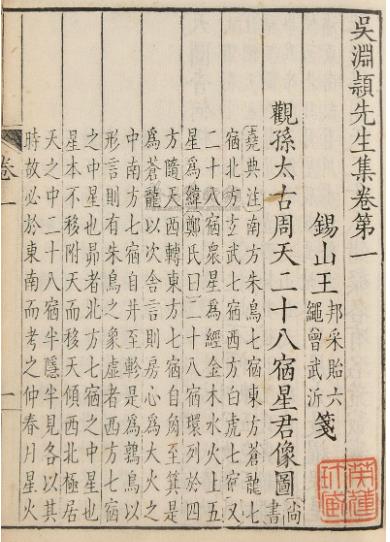 吳淵頴先生集卷第一
錫山王邦采貽六
繩曾武沂箋
觀孫太古周天二十八宿星君像圖尚書
堯典注南方朱鳥七宿東方蒼龍七
宿北方玄武七宿西方白虎七宿又
二十八宿衆星爲經金木水火土五
星爲緯鄭氏曰二十八宿環列於四
方隨天西轉東方七宿自角至箕是
爲蒼龍以次舍言則房心爲大火之
中南方七宿自井至軫是爲鶉鳥以
形言則有朱鳥之象虛者西方七宿
之中星也昴者北方七宿之中星也
星本不移附天而移天傾西北極居
天之中二十八宿半隱半見各以其
時故必於東南而考之仲春月星火
卷一
一